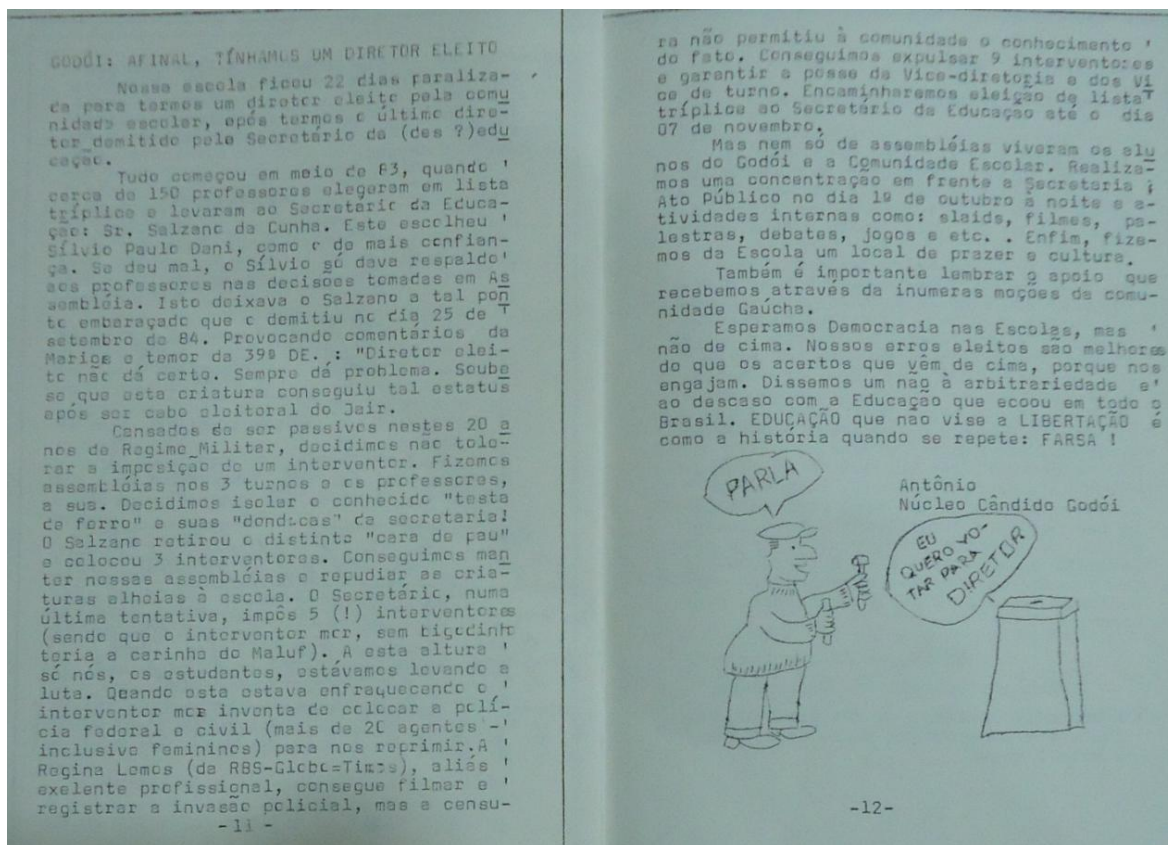 GODÓI: AFINAL, TÍNHAMOS UM DIRETOR ELEITO
Nossa escola ficou 22 dias paraliza-
da para termos um diretor eleito pela comu
nidade escolar, após termos o último dire-
tor demitido pelo Secretário da (des ?)edu
cação.
Tudo começou em meio de 83, quando '
cerca de 150 professores elegeram em lista
tríplice e levaram ao Secretario da Educa-
ção: Sr. Salzano da Cunha. Este escolheu '
Sílvio Paulo Dani, como o de mais confian-
ça. Se deu mal, o Sílvio só dava respaldo'
aos professores nas decisões tomadas em As
sembléia. Isto deixava o Salzano a tal pon
to embaraçado que o demitiu no dia 25 de
setembro de 84. Provocando comentários da
Marios e temor da 39ª DE. : "Diretor elei-
to não dá certo. Sempre dá problema. Soube
se que esta criatura conseguiu tal estatus
após ser cabo eleitoral do Jair.
Cansados de ser passivos nestes 20 a
nos de Regime Militar, decidimos não tole-
rar a imposição de um interventor. Fizemos
assembléias nos 3 turnos e os professores,
a sua. Decidimos isolar o conhecido "testa
de ferro" e suas "dondocas" da secretaria!
O Salzano retirou o distinto "cara de pau"
e colocou 3 interventores. Conseguimos man
ter nossas assembléias e repudiar as cria-
turas alheias à escola. O Secretário, numa
última tentativa, impôs 5 (!) interventores
(sendo que o interventor mor, sem bigodinho
teria a carinha do Maluf). A esta altura '
só nós, os estudantes, estávamos levando a
luta. Quando esta estava enfraquecendo o '
interventor mor inventa de colocar a polí-
cia federal e civil (mais de 20 agentes -'
inclusive femininos) para nos reprimir.A '
Regina Lemos (da RBS-Globo=Times), aliás '
exelente profissional, consegue filmar e '
registrar a invasão policial, mas a censu-
- 11 -
ra não permitiu à comunidade o conhecimento '
do fato. Conseguimos expulsar 9 interventores
e garantir a posse da Vice-diretoria e dos Vi
ce de turno. Encaminharemos eleição de lista
tríplice ao Secretário da Educação até o dia
07 de novembro.
Mas nem só de assembléias viveram os alu
nos do Godói e a Comunidade Escolar. Realiza-
mos uma concentração em frente a Secretaria ;
Ato Público no dia 1º de outubro à noite e a-
tividades internas como: slaids, filmes, pa-
lestras, debates, jogos e etc. . Enfim, fize-
mos da Escola um local de prazer e cultura.
Também é importante lembrar o apoio que
recebemos através da inumeras moções da comu-
nidade Gaúcha.
Esperamos Democracia nas Escolas, mas '
não de cima. Nossos erros eleitos são melhores
do que os acertos que vêm de cima, porque nos
engajam. Dissemos um não à arbitrariedade e'
ao descaso com a Educação que ecoou em todo o
Brasil. EDUCAÇÃO que não vise a LIBERTAÇÃO é
como a história quando se repete: FARSA !
Antônio
Núcleo Cândido Godói
PARLA
EU
QUERO VO-
TAR PARA
DIRETOR
-12-